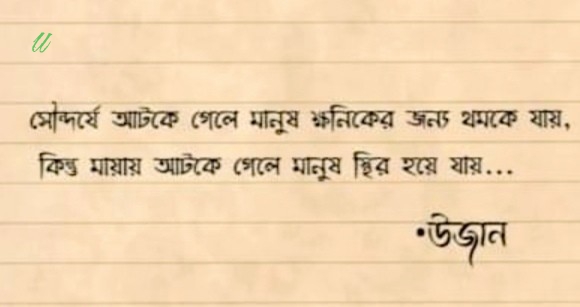 u
সৌন্দর্যে আটকে গেলে মানুষ ক্ষনিকের জন্য থমকে যায়,
কিন্তু মায়ায় আটকে গেলে মানুষ স্থির হয়ে যায়...
•উজান